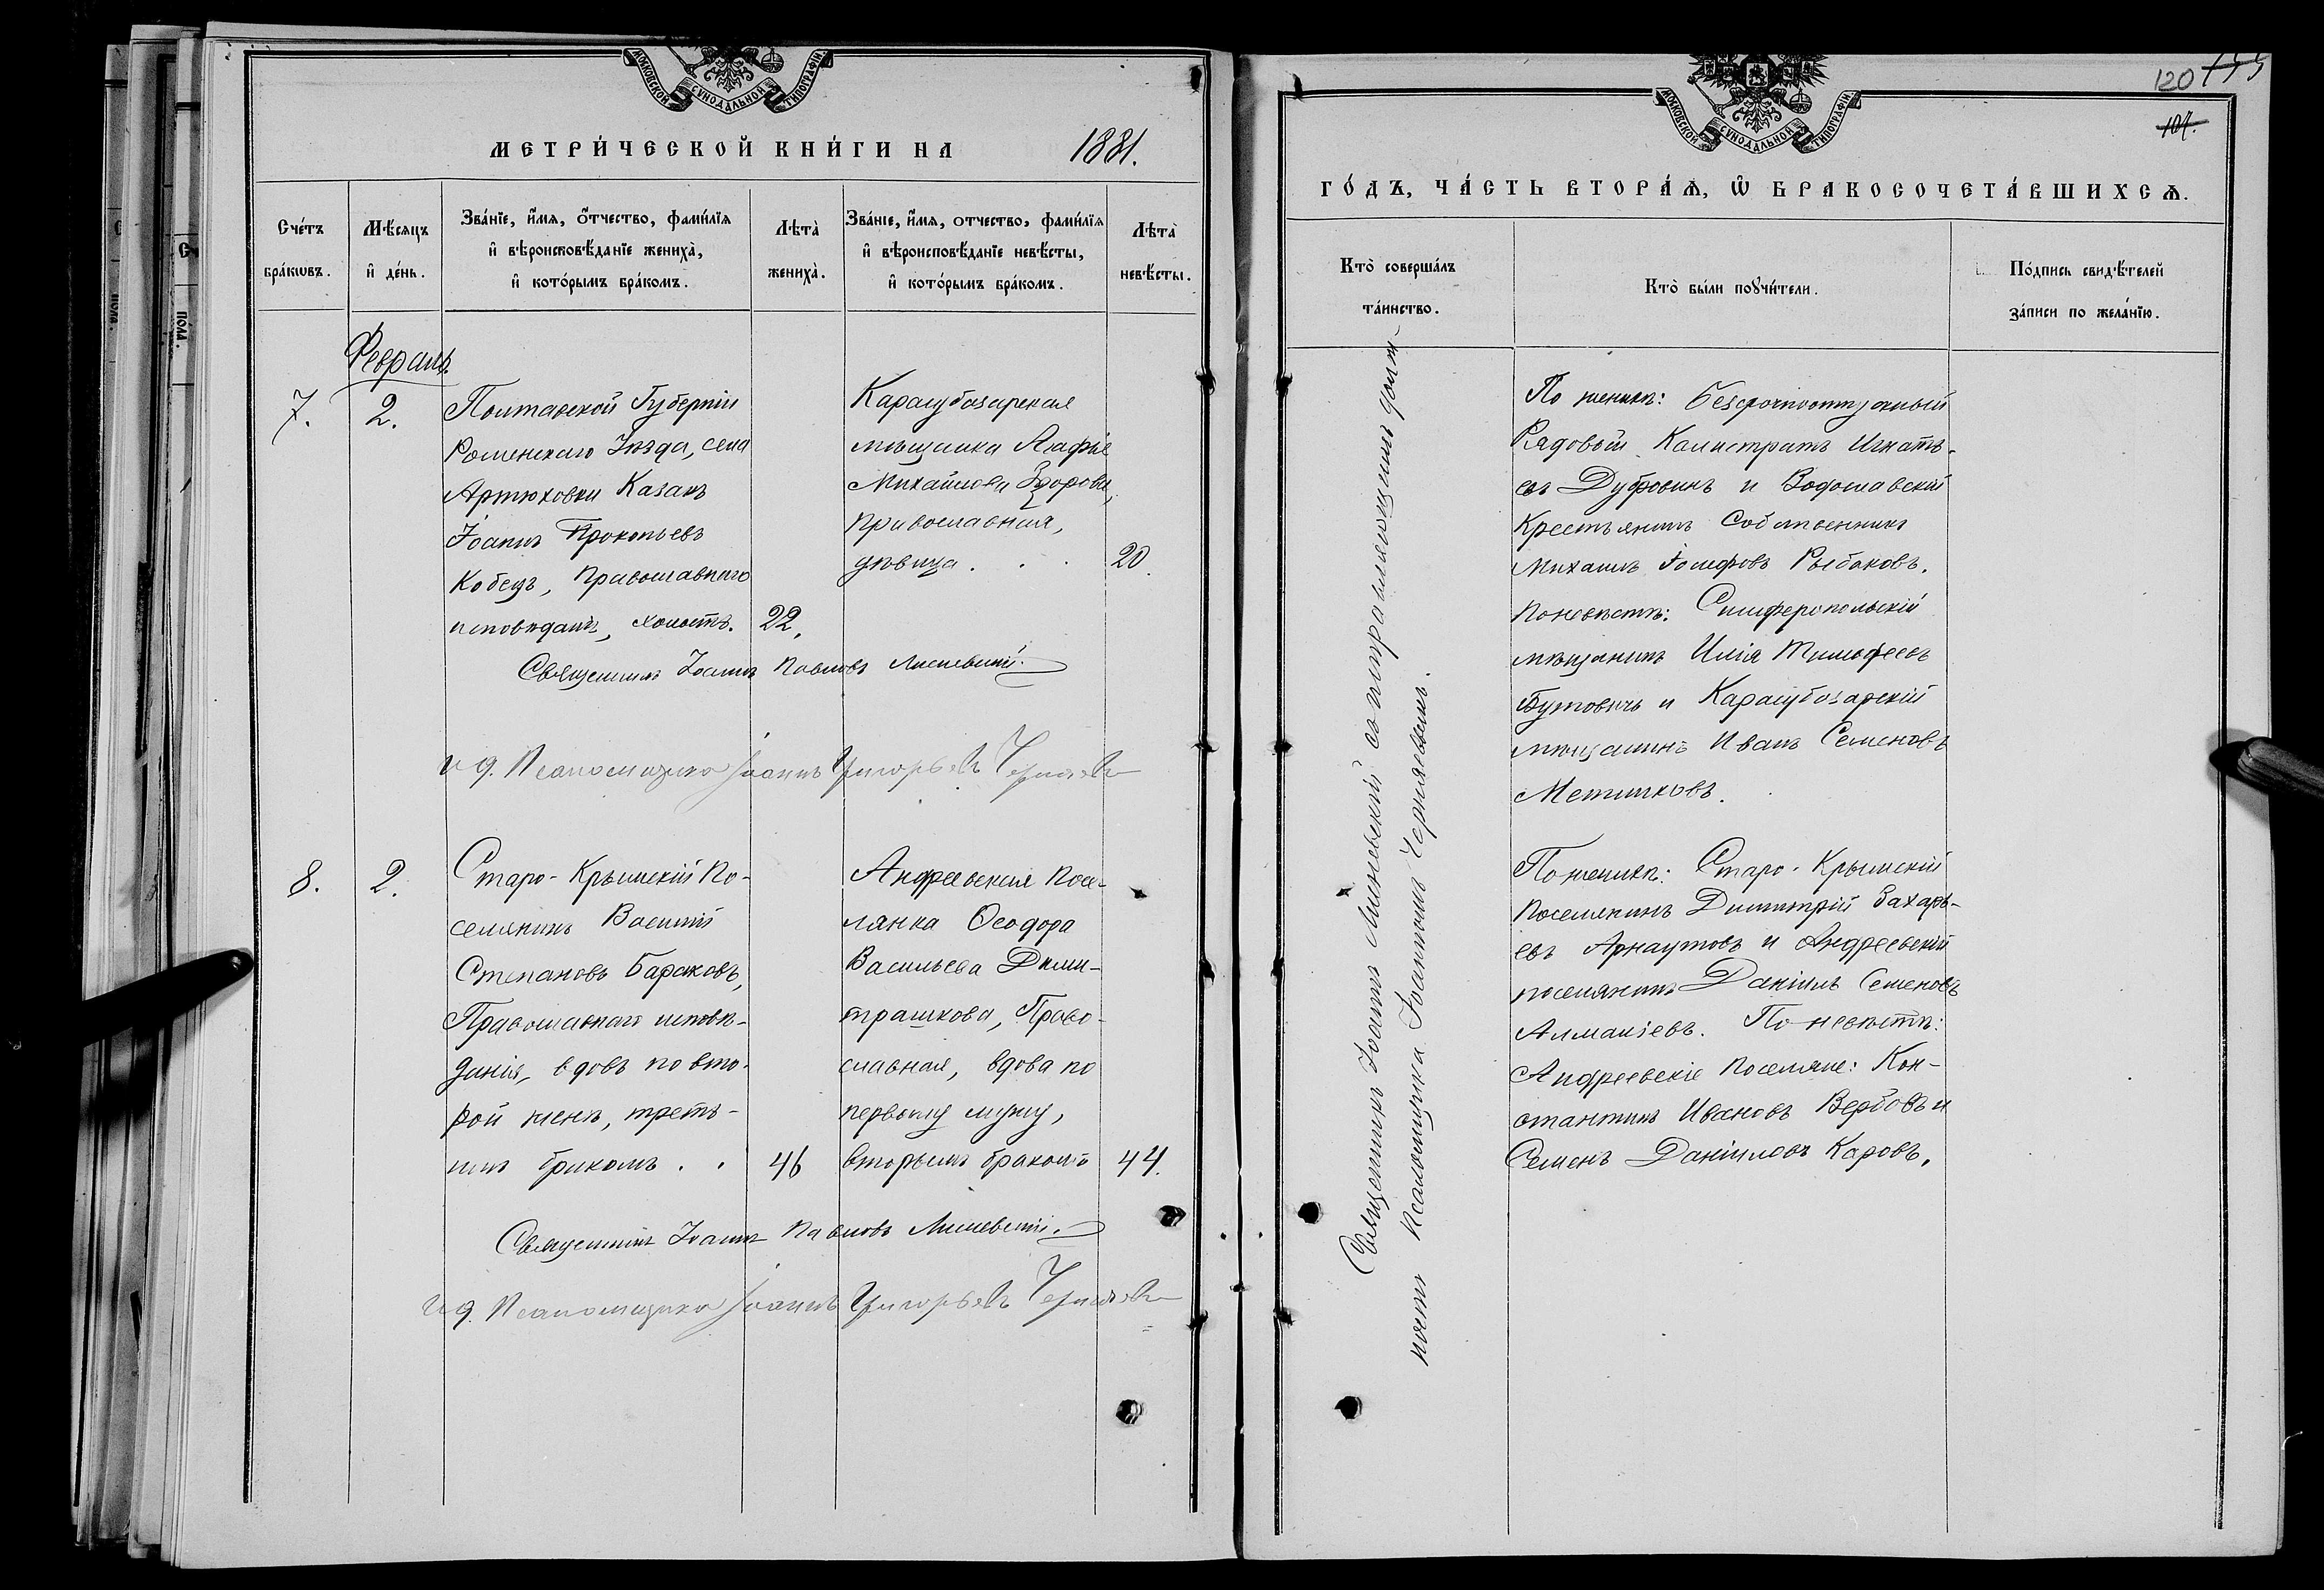 МОСКОВСКОЙ СУНОДАЛЬНОЙ ТИПОГРАФІИ.
МЕТРИ́ЧЕСКОЙ КНИ́ГИ НА 1881.
Сче́тъ бра́кωвъ.
Мѣ́сяцъ и҆ де́нь.
Зва́нїе, и҆́мя, о҆́тчество, фами́лїя
и҆ вѣроисповѣ́данїе жениха̀,
и҆ кото́рымъ бра́комъ.
Лѣта̀ жениха̀.
Зва́нїе, и҆́мя, отчество, фами́лїя
и҆ вѣроисповѣ́данїе невѣ́сты,
и҆ кото́рымъ бра́комъ.
Лѣта̀ невѣ́сты.
Февраль.
7.
2.
Полтавской Губерніи
Роменскаго Уѣзда, села
Артюховки Казакъ
Іоаннъ Прокопьевъ
Кобецъ, Православнаго
исповѣданія, холостъ.
22.
Карасубазарская
мѣщанка
Михайлова
православная,
дѣвица . . .
20.
Священникъ Іоаннъ Павловъ
и д. Псаломщика Іоаннъ Григорьевъ Чернявскій
8.
2.
Старо-Крымскій По-
селянинъ Василій
Степановъ Бараковъ,
Православнаго исповѣ-
данія, вдовъ по вто-
рой женѣ, треть-
имъ бракомъ . .
46
Андреевская Посе-
лянка Ѳеодора
Васильева Дими-
трашкова, Право-
славная, вдова по
первому мужу,
вторымъ бракомъ
44.
Священникъ Іоаннъ Павловъ
и д. Псаломщика Іоаннъ Григорьевъ Чернявскій
120 155
107.
МОСКОВСКОЙ СУНОДАЛЬНОЙ ТИПОГРАФІИ.
ГО́ДЪ, ЧА́СТЬ ВТОРА́Ѧ, Ѡ҆ БРАКОСОЧЕТА́ВШИХСѦ.
Кто̀ соверша́лъ
та́инство.
Кто̀ бы́ли поꙋчи́тели.
По́дпись свидѣ́телей
за́писи по жела́нїю.
Священникъ Іоаннъ съ исправляющимъ долж-
ность Псаломщика Іоанномъ Чернявскимъ.
По женихѣ: безсрочноотпускный
Рядовой Калистратъ Игнатъ-
евъ Дубровинъ и
Крестьянинъ Собственникъ
Михаилъ Іосифовъ Рыбаковъ.
По невѣстѣ: Симферопольскій
мѣщанинъ Илія Тимофеевъ
Бутовичъ и Карасубазарскій
мѣщанинъ Иванъ Семеновъ
По женихѣ: Старо-Крымскій
Поселянинъ Димитрій Захарь-
евъ Арнаутовъ и Андреевскій
поселянинъ Даніилъ Семеновъ
По невѣстѣ:
Андреевскіе Поселяне: Кон-
стантинъ Ивановъ Вербовъ и
Семенъ Даніиловъ Каровъ.